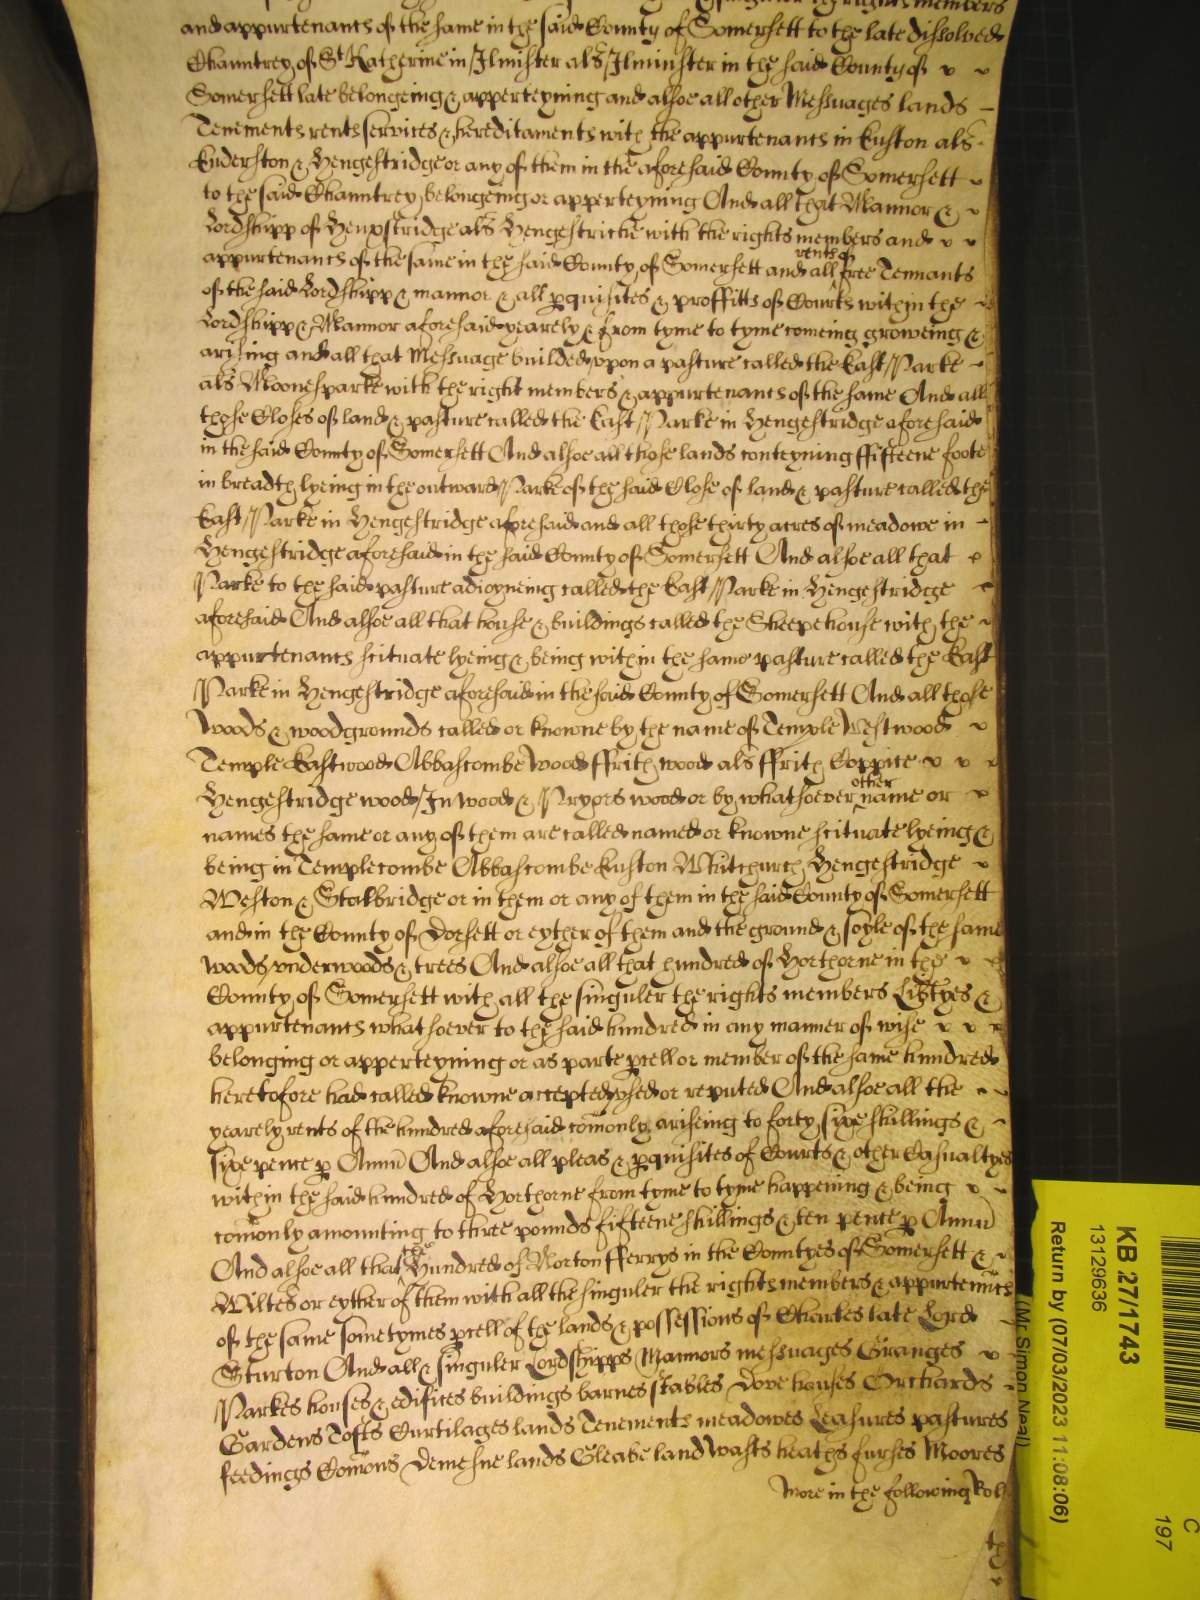 singuler the rights members
and appurtenancs of the same in the said County of Somersett to the late dissolved
Chauntrey of St Katherine in Ilmister als Ilminster in the said County of
Somersett late belongeing & apperteyning and alsoe all other Messuages lands
Tenements rents services & hereditaments with the appurtenancs in Kuston als
Kiderston & Hengestridge or any of them in the aforesaid County of Somersett
to the said Chauntrey belongeing or apperteyning And all that Mannor &
Lordshipp of Henxstridge als Hengestriche with the rights members and
appurtenancs of the same in the said County of Somersett and all rents of free Tennants
of the said Lordshipp & mannor & all pquisites & proffitts of Courts within the
Lordshipp & Mannor aforesaid yearely & from tyme to tyme comeing groweing &
arising and all that Messuage builded upon a pasture called the East Parke
als Moonesparke with the right members & appurtenancs of the same And all
those Closes of land & pasture called the East Parke in Hengestridge aforesaid
in the said County of Somersett And alsoe all those lands conteyning ffifteene foote
in breadth lyeing in the outward Parke of the said Close of land & pasture called the
East Parke in Hengestridge aforesaid and all those thirty acres of meadowe in
Hengestridge aforesaid in the said County of Somersett And alsoe all that
Parke to the said pasture adioyneing called the East Parke in Hengestridge
aforesaid And alsoe all that house & buildings called the Sheepehouse with the
appurtenancs scituate lyeing & being within the same pasture called the East
Parke in Hengestridge aforesaid in the said County of Somersett And all those
Woods & woodgrounds called or knowne by the name of Temple Westwood
Temple Eastwood Abbascombe Wood ffrith wood als ffrith Coppice
Hengestridge wood Inwood & Pryors wood or by whatsoever other name or
names the same or any of them are called named or knowne scituate lyeing &
being in Templecombe Abbascombe Kuston Whitchurch Hengestridge
Weston & Stalbridge or in them or any of them in the said County of Somersett
and in the County of Dorsett or eyther of them and the ground & soyle of the same
woods underwoods & trees And alsoe all that hundred of Horthorne in the
County of Somersett with all the singuler the rights members Libtyes &
appurtenancs whatsoever to the said hundred in any manner of wise
belonging or apperteyning or as parte pcell or member of the same hundred
heretofore had called knowne accepted used or reputed And alsoe all the
yearely rents of the hundred aforesaid comonly ariseing to forty sixe shillings &
sixe pence p Annu And alsoe all pleas & pquisites of Courts & other Casualtyes
within the said hundred of Horthorne from tyme to tyme happening & being
comonly amounting to three pounds fifteene shillings & ten pence p Annu
And alsoe all that the Hundred of Norton fferrys in the Countyes of Somersett &
Wiltes or eyther of them with all the singuler the rights members & appurtenncs
of the same sometymes pcell of the lands & possessions of Charles late Lord
Sturton And all & singuler Lordshipps Mannors messuages Granges
Parkes houses & edifices buildings barnes stables Dove houses Orchards
Gardens Tofts Curtilages lands Tenements meadowes Leasures pastures
feedings Comons Demesne lands Gleabe land Wasts heaths furses Moores
More in the following Roll
KB 27/1743
13129636
Return by (07/03/2023 11:08:06)
(Mr Simon Neal)
C
197